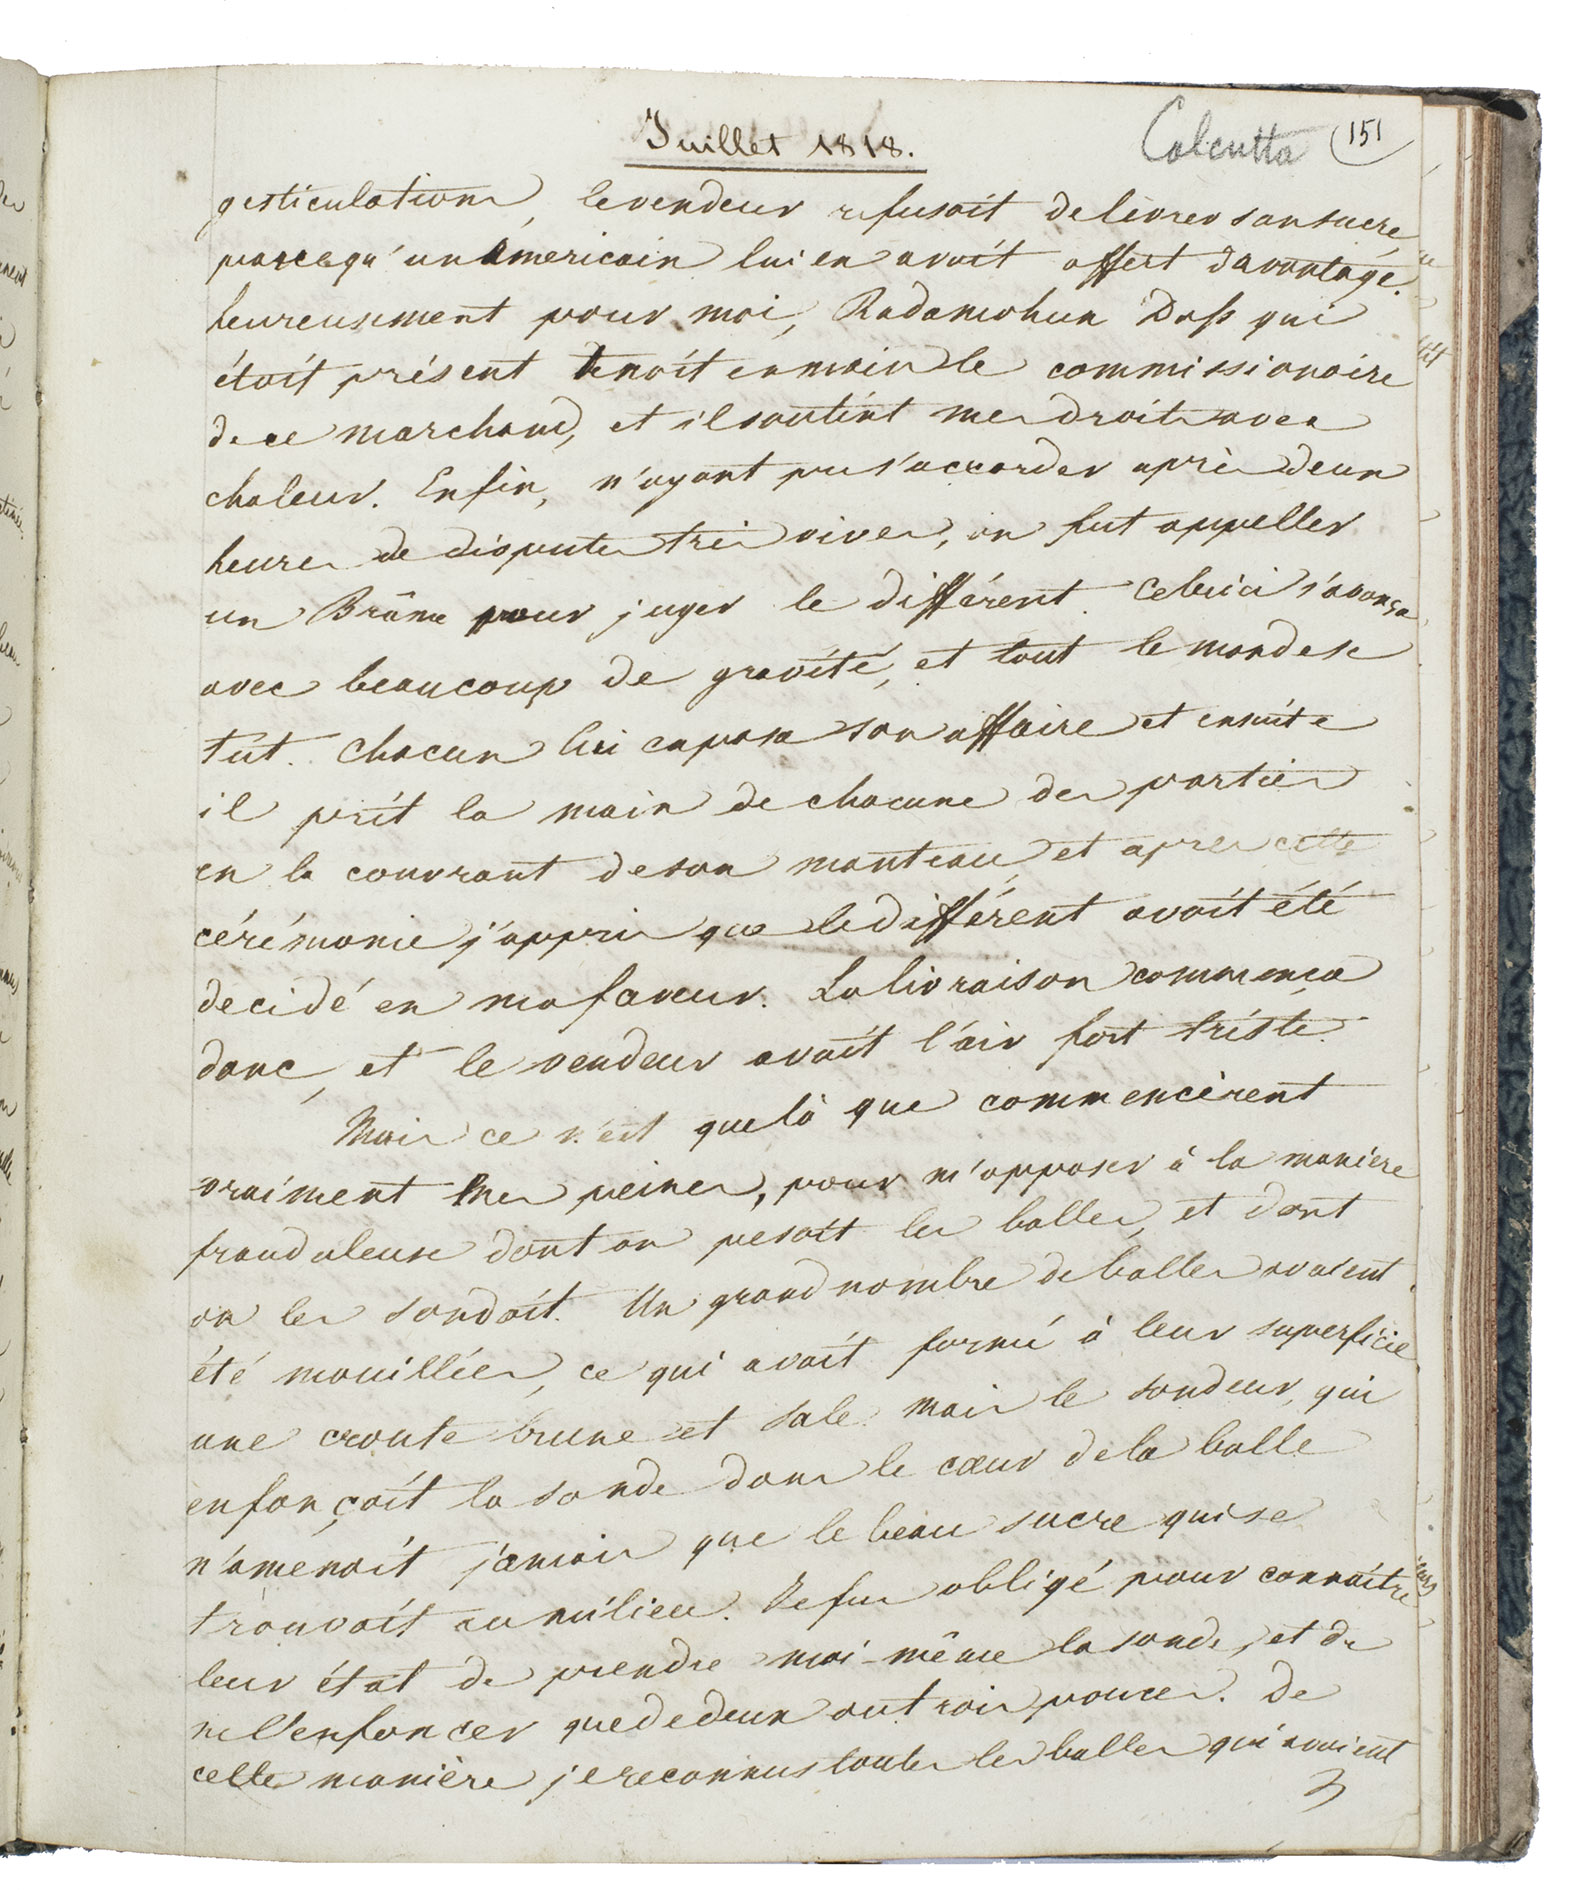 Juillet 1818.
Calcutta
151
gesticulations, le vendeur refusait de livrer son sucre,
parcequ'un américain lui en avait offert davantage.
heureusement pour moi, Radamohun Doss qui
étoit présent tenoit en main le commissionaire
de ce marchand, et il soutint mes droits avec
chaleur. Enfin, n'ayant pu s'accorder après deux
heures de disputes très vives, on fut appeller
un Brâme pour juger le différent. Celui ci s'avança
avec beaucoup de gravité, et tout le monde se
tut. Chacun lui exposa son affaire et ensuite
il prit la main de chacune des parties
en la couvrant de son manteau, et après cette
cérémonie j'appris que le différent avait été
decidé en ma faveur. La livraison commença
donc, et le vendeur avait l'air fort triste.
Mais ce n'est que là que commencèrent
vraiment mes peines, pour m'opposer à la maniere
frauduleuse dont on pesait les balles, et dont
on les sondait. Un grand nombre de balles avaient
été mouillées, ce qui avait formé à leur superficie
une croute brune et sale. mais le sondeur, qui
enfonçait la sonde dans le cœur de la balle
n'amenait jamais que le beau sucre qui se
trouvait au milieu. Je fus obligé pour connaitre
leur état de prendre moi-même la sonde, et de
ne l'enfoncer que de deux ou trois pouces. De
cette manière je reconnus toutes les balles qui avaient